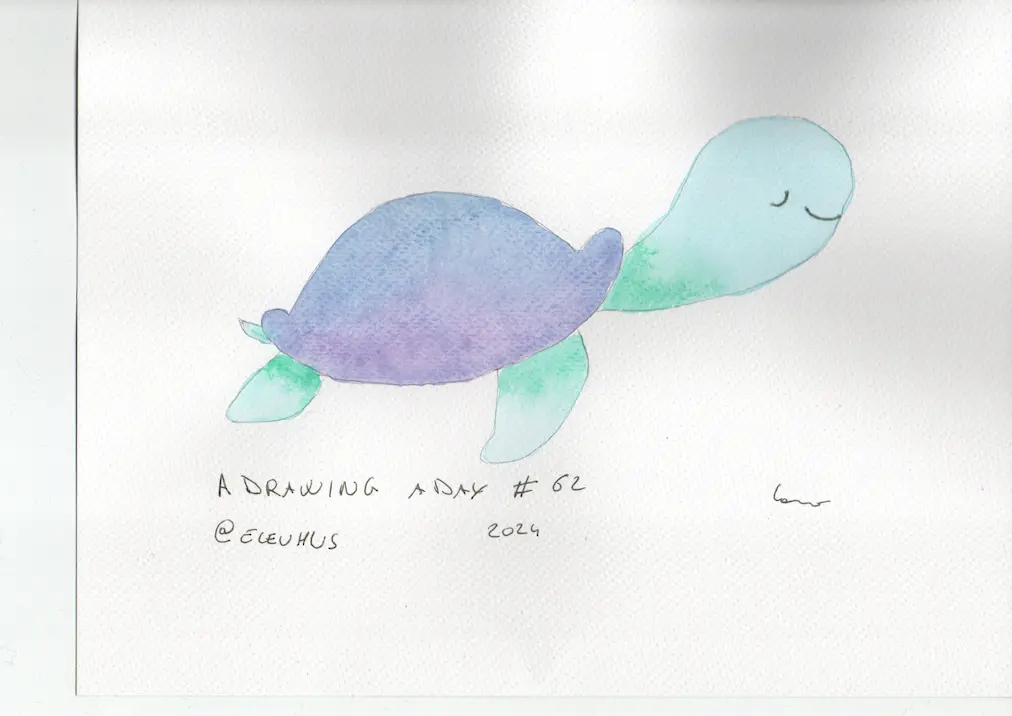 A DRAWING A DAY # 62
@ELEUHUS
2024